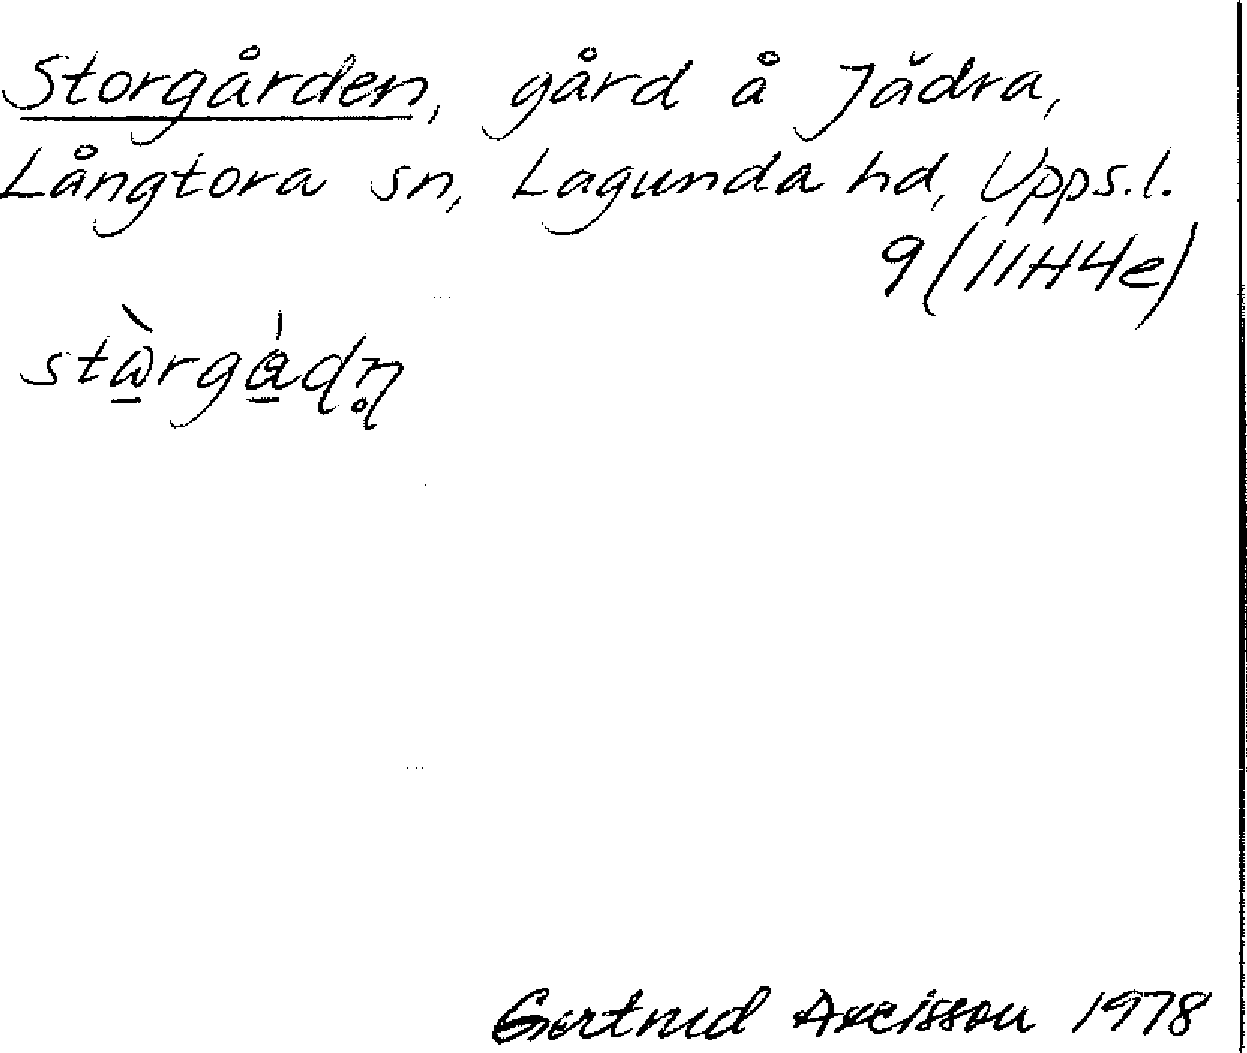 Storgården, gård å Jädra,
Långtora sn, Lagunda hd, Upps.l.
9 (11H4e)
Gertrud Axelsson 1978